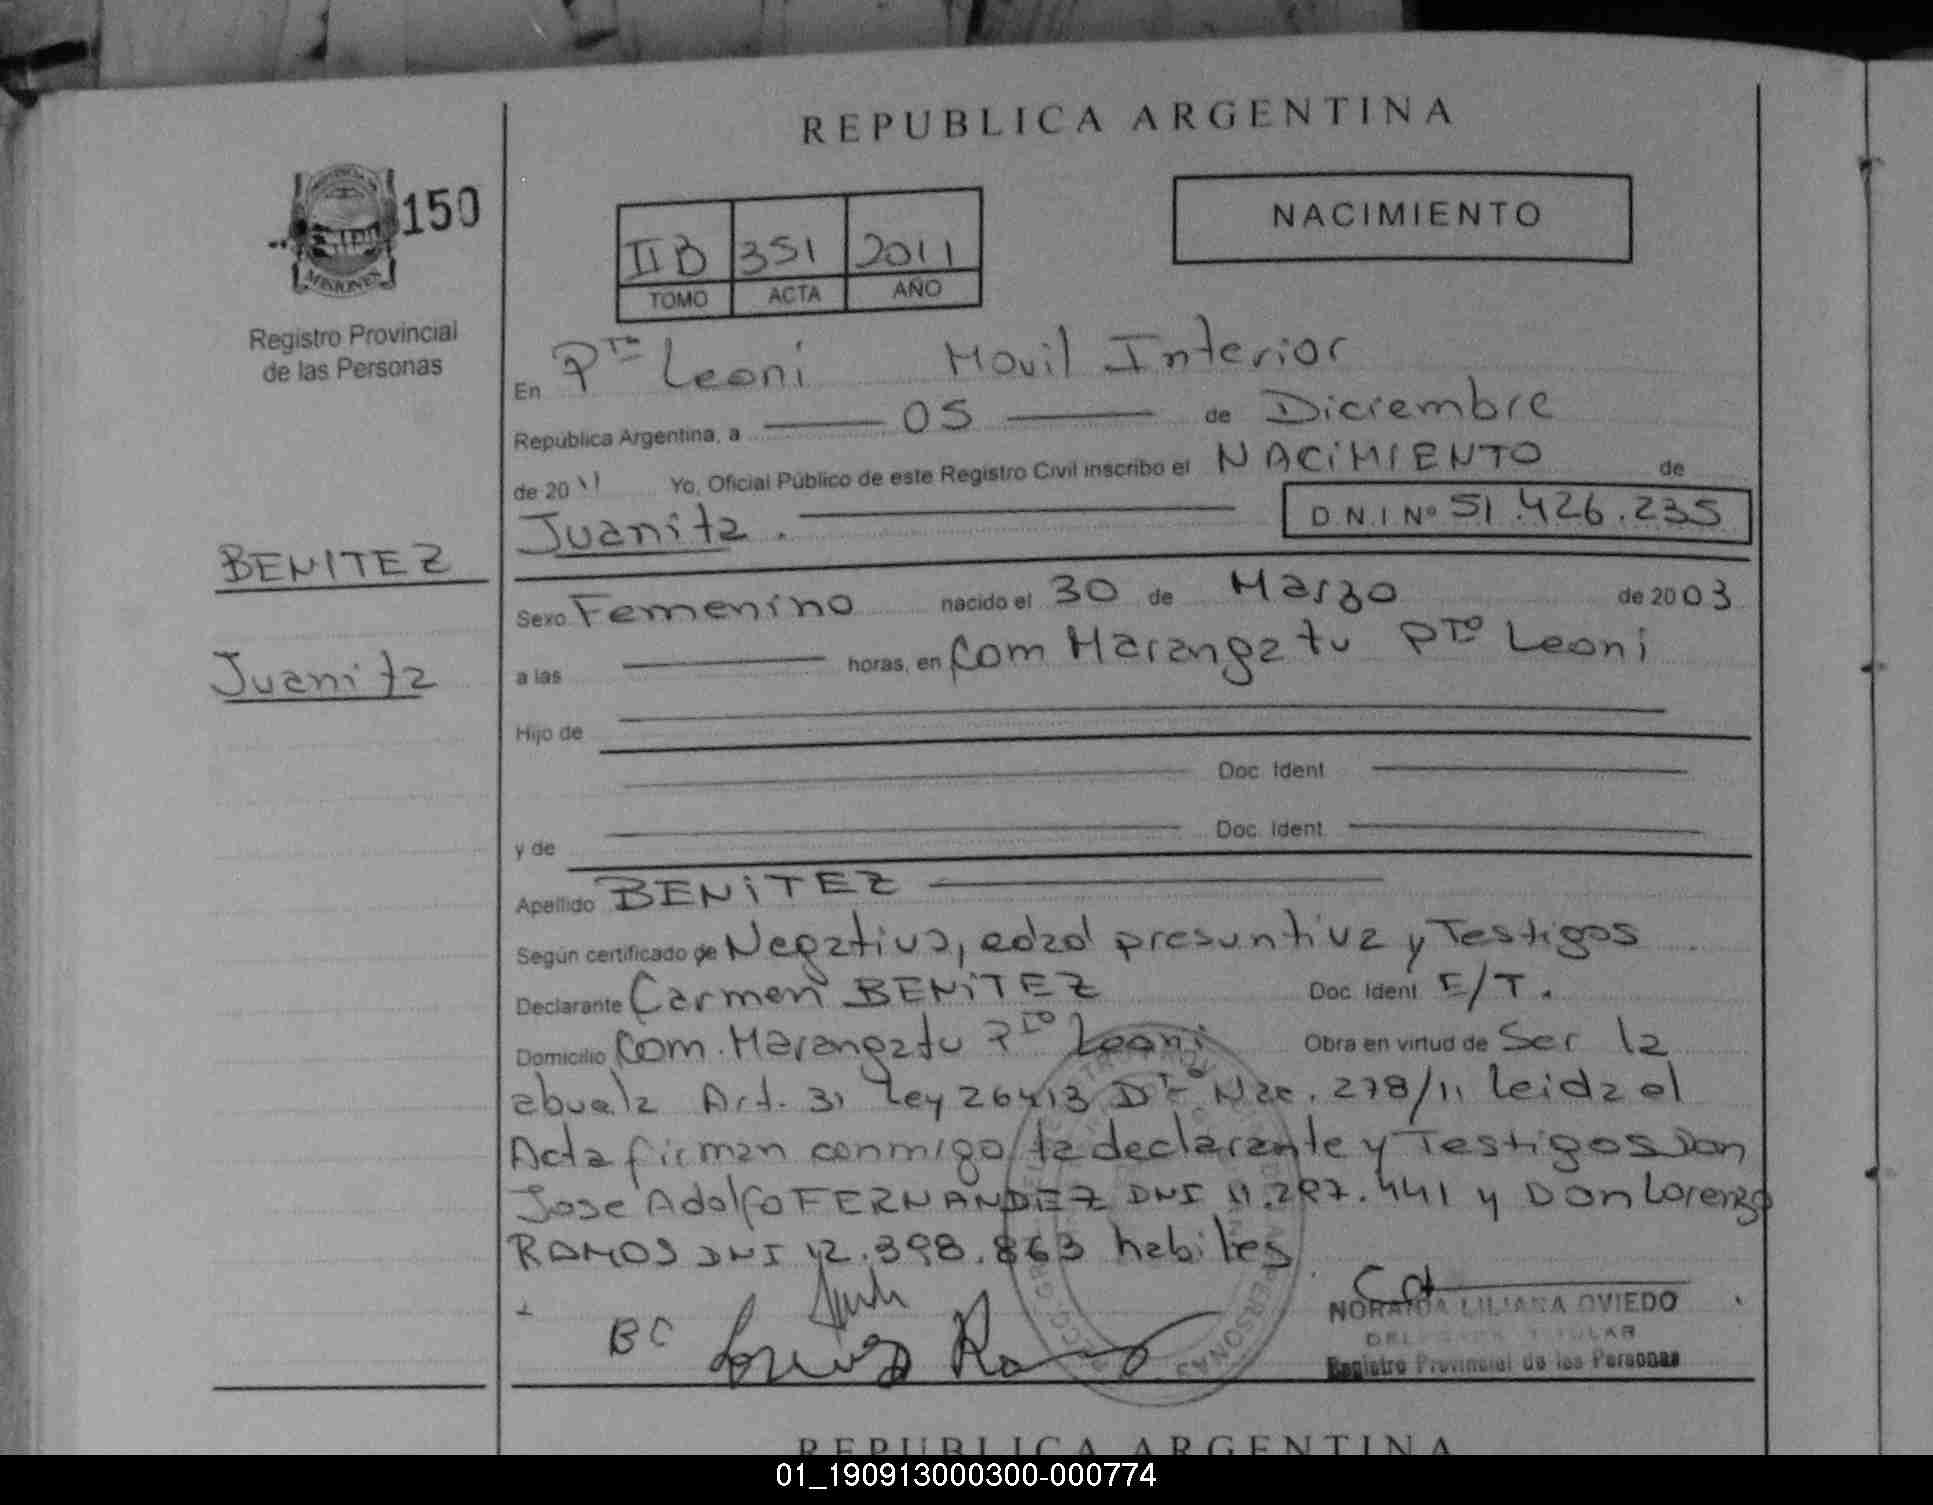 REPUBLICA ARGENTINA
MISIONES
150
Registro Provincial
de las Personas
IIB 351 2011
TOMO ACTA AÑO
NACIMIENTO
En Pto Leoni Movil Interior
República Argentina, a 05 de Diciembre
de 2011 Yo, Oficial Público de este Registro Civil inscribo el NACIMIENTO de
Juanita. D.N.I Nº 51.426.235
BENITEZ
Juanita
Sexo Femenino nacido el 30 de Marzo de 2003
a las horas, en Com Marangatu Pto Leoni
Hijo de
Doc. Ident.
y de Doc. Ident.
Apellido BENITEZ
Según certificado de Negativo, edad presuntiva y Testigos
Declarante Carmen BENITEZ Doc. Ident E/T.
Domicilio Com. Marangatu Pto Leoni Obra en virtud de Ser la
abuela Art. 31 Ley 26413 Nac. 278/11 leida el
Acta firman conmigo la declarante y Testigos Don
Jose Adolfo FERNANDEZ DNI 11.297.441 y Don Lorenzo
RAMOS DNI 12.398.863 habiles
BC
NORAIDA LILIANA OVIEDO
DELEGADA TITULAR
Registro Provincial de las Personas
REPUBLICA ARGENTINA
01_190913000300-000774